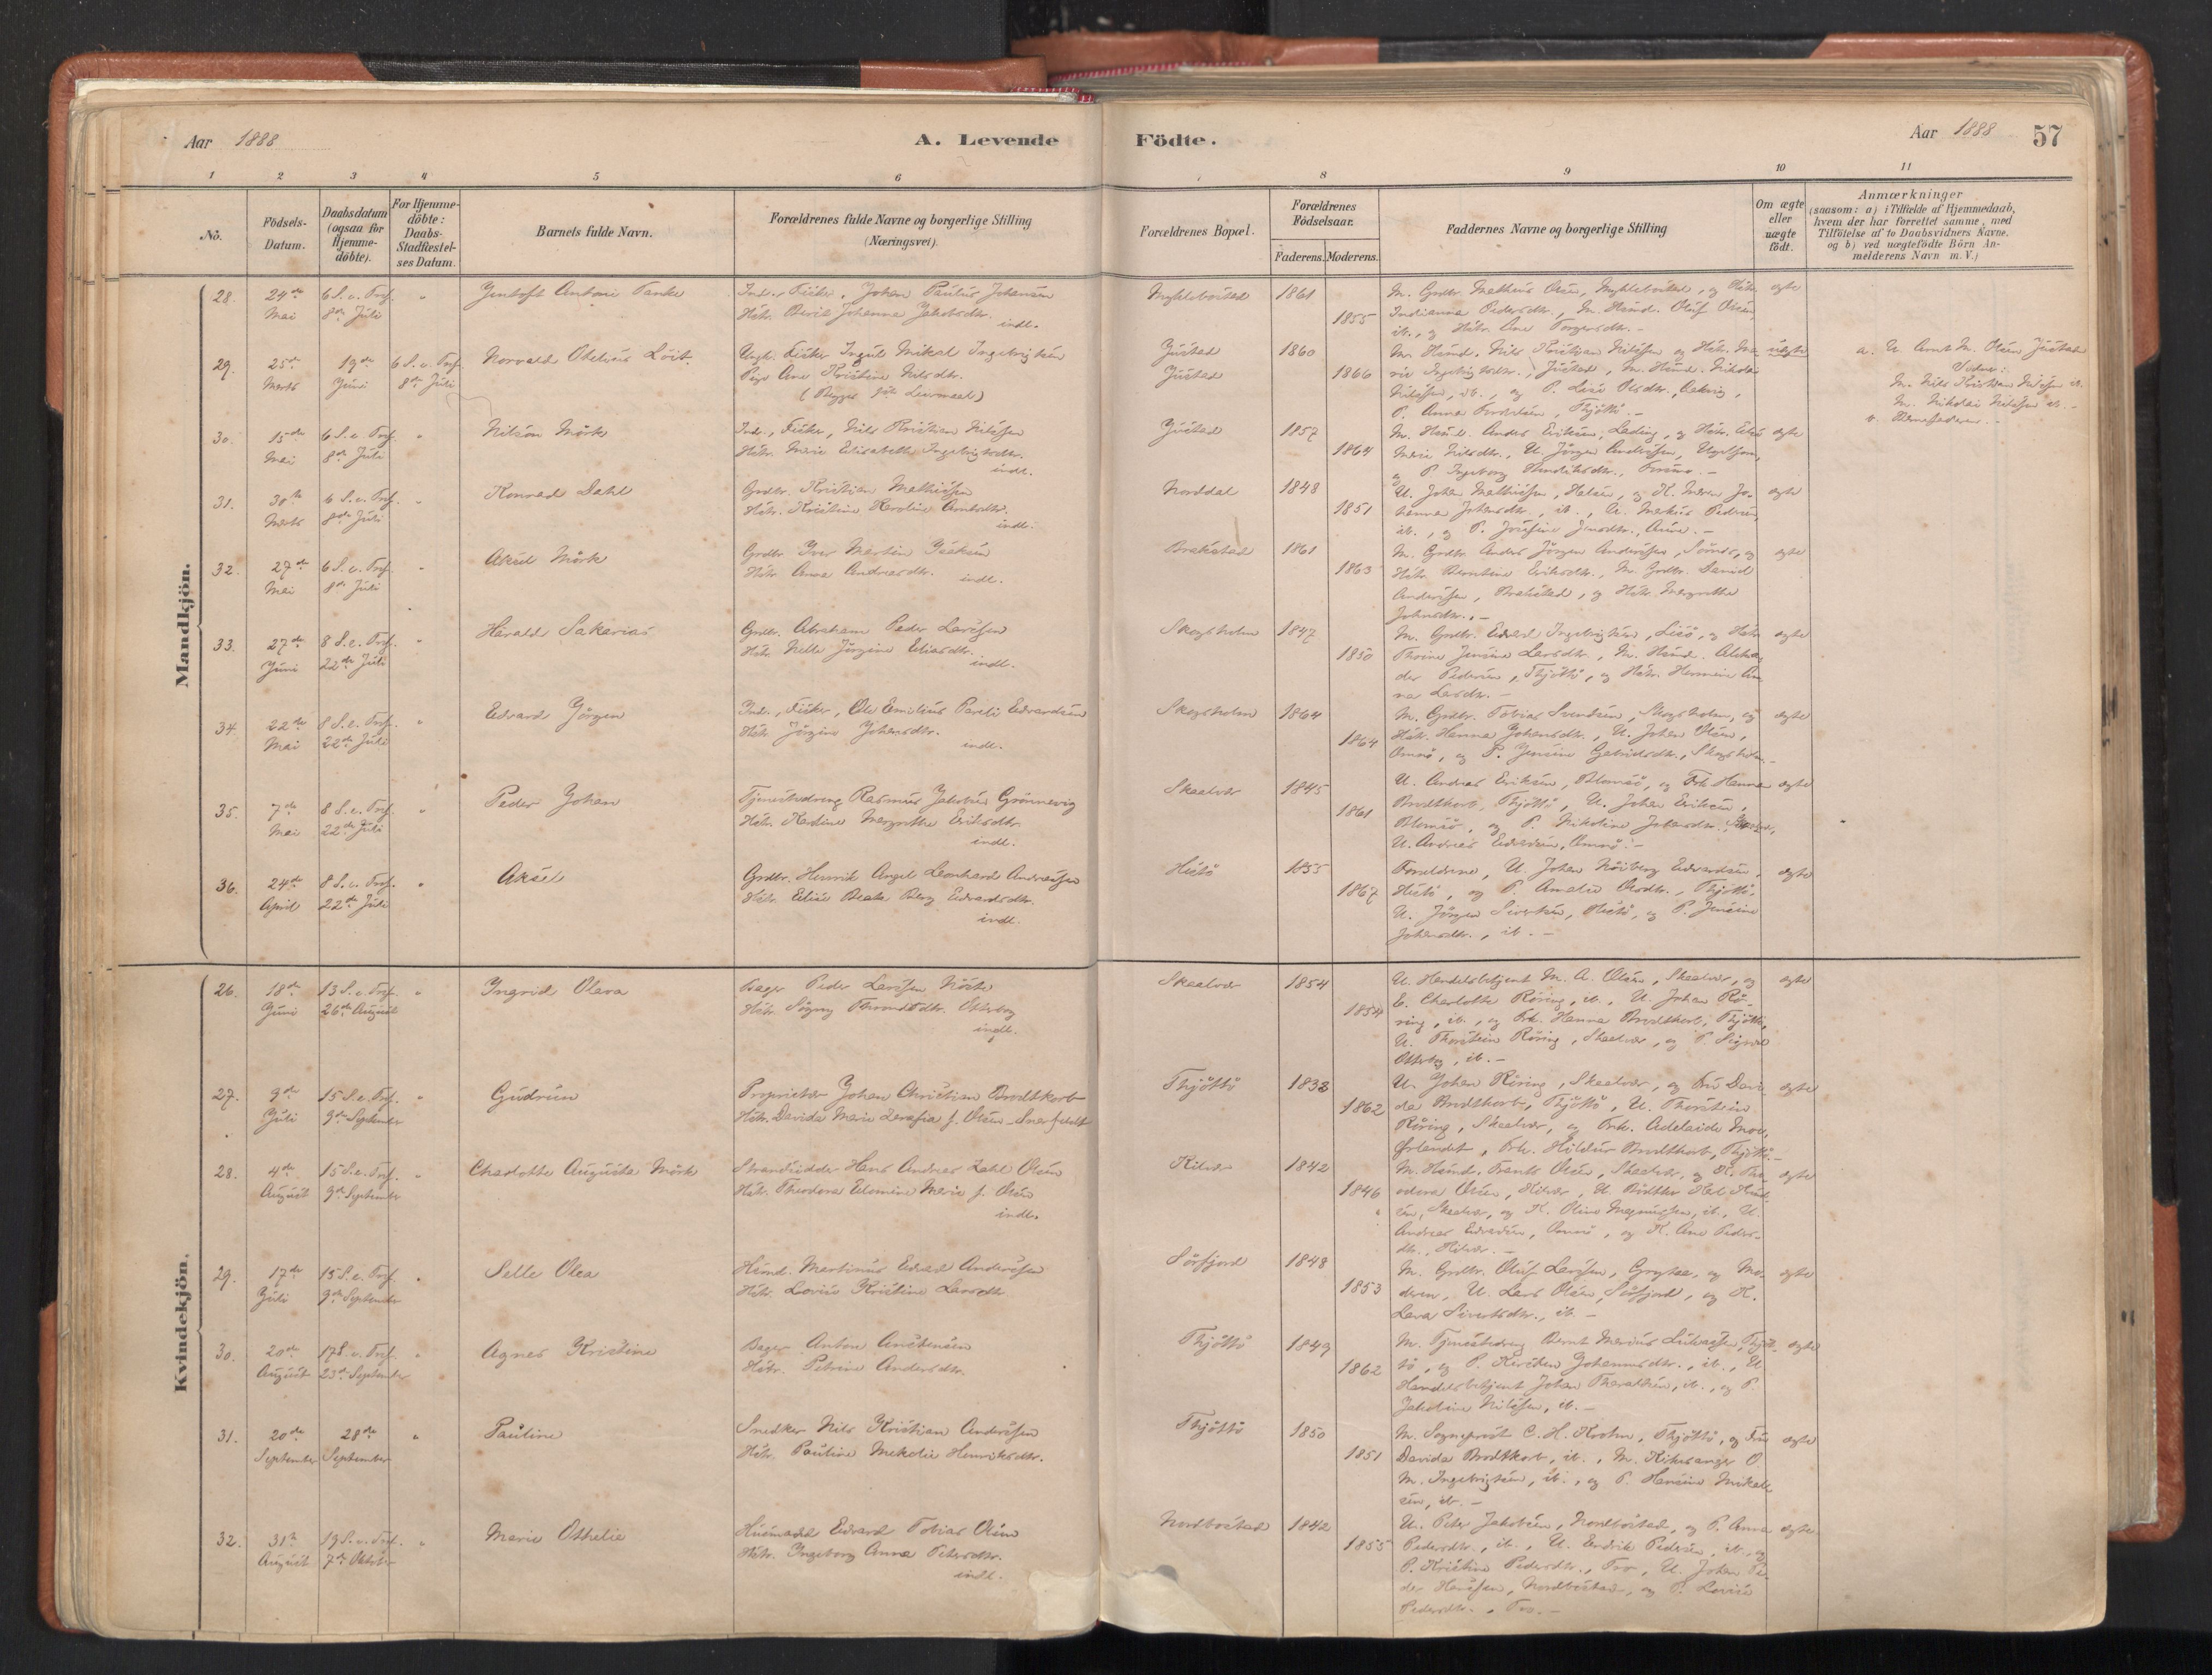 Aar 1888
A. Levende
Födte.
Aar 1888
57
1 2 3 4 5 6
8 9 10 11
No.
Födsels-
Datum.
Daabsdatum
(ogsaa for
Hjemme-
döbte).
For Hjemme-
döbte:
Daabs-
Stadfæstel-
ses Datum.
Barnets fulde Navn.
Forældrenes fulde Navne og borgerlige Stilling
(Næringsvei).
Forældrenes Bopæl.
Forældrenes
Födselsaar.
Faderens. Moderens.
Faddernes Navne og borgerlige Stilling
Om ægte
eller
uægte
födt.
Anmærkninger
(saasom: a) i Tilfælde af Hjemmedaab,
hvem der har forrettet samme, med
Tilföielse af to Daabsvidners Navne.
og b) ved uægtefödte Börn An-
melderens Navn m. V.)
Mandkjön.
28. 24de 6 S. e. Tref.
Mai 8de Juli
Antoni Tanke
Ind., Fisker, Johan Paulus Johansen
Hstr. Berit Johanna Jakobsdtr.
indl.
Myklebostad 1861
1855
M. Grdbr. Mathias Olsen, Myklebostad, og Hstr.
Indianna Pedersdtr., M. Husmd. Oluf Olsen,
ib., og Hstr. Ane Torgersdtr. -
ægte
29. 25de 19de 6 S. e. Tref.
Marts Juni 8de Juli
Norvald Otelius Löit
Ungk. Fisker Ingul Mikal Ingebrigtsen
Pige Ane Kristine Nilsdtr.
(Begges 1ste Leiermaal)
Justad 1860
Justad 1866
M. Husmd. Nils Kristian Nilssen og Hstr. Ma-
rie Ingebrigtsdtr., Justad, M. Husmd. Nikolai
Nilssen, ib., og P. Lise Olsdtr.,
P. Anna, Thjöttö. -
uægte
a. U. Arnt M. Olsen Justad
M. Nils Kristian Nilssen ib.
M. Nikolai Nilssen ib. -
b. Barnefaderen. -
30. 15de 6 S. e. Tref.
Mai 8de Juli
Nilson Mörk
Ind., Fisker, Nils Kristian Nilssen
Hstr. Marie Elisabeth Ingebrigtsdtr.
indl.
Justad 1857
1864
M. Husmd. Anders Eriksen, Leding, og Hstr. Elen
Marie Nilsdtr., U. Jörgen Andersen,
og P. Ingeborg Henriksdtr., -
ægte
31. 30te 6 S. e. Tref.
Marts 8de Juli
Konrad Dahl
Grdbr. Kristian Mathissen
Hstr. Kristine Karoline Arntsdtr.
indl.
Norddal 1848
1851
U. Johan Mathissen, og K. Maren Jo-
hanna Johansdtr., ib., U. Markus Pedersen,
ib., og P. Josefine Jensdtr., -
ægte
32. 27de 6 S. e. Tref.
Mai 8de Juli
Aksel Mörk
Grdbr. Iver Martin Isaksen
Hstr. Anna Andreasdtr.
indl.
Brækstad 1861
1863
M. Grdbr. Anders Jörgen Anderssen, Sörnes, og
Hstr. Berntine Eriksdtr., M. Grdbr. Daniel
Anderssen, Brækstad, og Hstr. Margrethe
Johnsdtr., -
ægte
33. 27de 8 S. e. Tref.
Juni 22de Juli
Harald Sakarias
Grdbr. Abraham Peder Larssen
Hstr. Nella Jörgine Eliasdtr.
indl.
Skogsholm 1847
1850
M. Grdbr. Edvard Ingebrigtsen, Lisö, og Hstr.
Thrine Jensine Larsdtr., M. Husmd. Aleksan-
der Pedersen, Thjöttö, og Hstr. Hermine An-
na Larsdtr. -
ægte
34. 22de 8 S. e. Tref.
Mai 22de Juli
Edvard Jörgen
Ind., Fisker, Ole Emilius Pareli Edvardsen
Hstr. Jörgine Johansdtr.
indl.
Skogsholm 1864
1864
M. Grdbr. Tobias Svendsen, Skogsholm, og
Hstr. Hanna Johansdtr., U. Johan Olsen,
Omnö, og P. Jensine Gabrielsdtr., Skogsholm. -
ægte
35. 7de 8 S. e. Tref.
Mai 22de Juli
Peder Johan
Tjenestedreng Rasmus Jakobsen Grönnevig
Hstr. Kardine Margrethe Eriksdtr.
indl.
Skaalvær 1845
1861
U. Andreas Eriksen, Blomsö, og Frk. Hanna
Brodtkorb, Thjöttö, U. Johan Eriksen,
Blomsö, og P. Nikoline Johansdtr.,
U. Andreas Edvardsen, Omnö. -
ægte
36. 24de 8 S. e. Tref.
April 22de Juli
Aksel
Grdbr. Henrik Angel Leonhard Andreassen
Hstr. Elise Beate Berg Edvardsdtr.
indl.
Hestö 1855
1867
Forældrene, U. Johan Edvardsen,
Hestö, og P. Amalie Olsdtr., Thjöttö,
U. Jörgen Sivertsen, Hestö, og P. Jensine
Johansdtr., ib. -
ægte
Kvindekjön.
26. 18de 13 S. e. Tref.
Juni 26de August
Ingrid Olava
Bager Peder Larssen
Hstr. Throndsdtr. Otterbeg
indl.
Skaalvær 1854
1854
U. Handelsbetjent M. A. Olsen, Skaalvær, og
E. Charlotte Röring, ib., U. Johan Rö-
ring, ib., og Frk. Hanna Brodtkorb, Thjöttö,
U. Thorstein Röring, Skaalvær, og P. Sigrid
Otterbeg, ib. -
ægte
27. 9de 15 S. e. Tref.
Juli 9de September
Gudrun
Proprietær Johan Christian Brodtkorb
Hstr. Davida Marie Serafia f. Olsen-Snerfeldt
Thjöttö 1833
1862
U. Johan Röring, Skaalvær, og Fru Davi-
da Brodtkorb, Thjöttö, U. Thorstein
Röring, Skaalvær, og Frk. Adelaide Moe,
Örlandet, Frk. Hildur Brodtkorb, Thjöttö. -
ægte
28. 4de 15 S. e. Tref.
August 9de September
Charlotte Augusta Mörk
Strandsidder Hans Andreas Zahl Olsen
Hstr. Theodora Edomine Marie f. Olsen
indl.
Kilvær 1842
1846
M. Husmd. Frants Olsen, Skaalvær, og K. The-
odora Olsen, Kilvær,
Skaalvær, og K. Oline Magnussen, ib., U.
Andreas Edvardsen, Omnö, og K. Ane Peders-
dtr., Kilvær. -
ægte
29. 17de 15 S. e. Tref.
Juli 9de September
Selle Olea
Husmd. Martinus Edvard Anderssen
Hstr. Lovise Kristine Larsdtr.
Sörfjord 1848
1853
M. Grdbr. Oluf Larssen, og Mo-
deren, U. Lars Olsen, Sörfjord, og K.
Lava Sivertsdtr., ib. -
ægte
30. 20de 17 S. e. Tref.
August 23de September
Agnes Kristine
Bager Anton Anstensen
Hstr. Petrine Andersdtr.
Thjöttö 1849
1862
M. Tjenestedreng Bernt Marius, Thjöt-
tö, og P. Kirsten Johannesdtr., ib., U.
Handelsbetjent Johan Tharaldsen, ib., og P.
Jakobine Nilssen, ib. -
ægte
31. 20de 28de
September September
Pauline
Snedker Nils Kristian Anderssen
Hstr. Pauline Mekolie Henriksdtr.
Thjöttö 1850
1851
M. Sogneprest C. H. Krohn, Thjöttö, og Fru
Davida Brodtkorb, ib., M. Kirkesanger O.
M. Ingebrigtsen, ib., og P. Hansine Mikal-
sen, ib. -
ægte
32. 31te 19 S. e. Tref.
August 7de Oktober
Marie Othelie
Husmand Edvard Tobias Olsen
Hstr. Ingeborg Anna Petersdtr.
indl.
Nordbostad 1842
1855
U. Peter Jakobsen, Nordbostad, og P. Anna
Pedersdtr., ib., U. Endrik Pedersen, ib., og
P. Kristine Pedersdtr., Tro, U. Johan Pe-
der Hanssen, Nordbostad, og P. Lovise
Pedersdtr., Tro. -
ægte